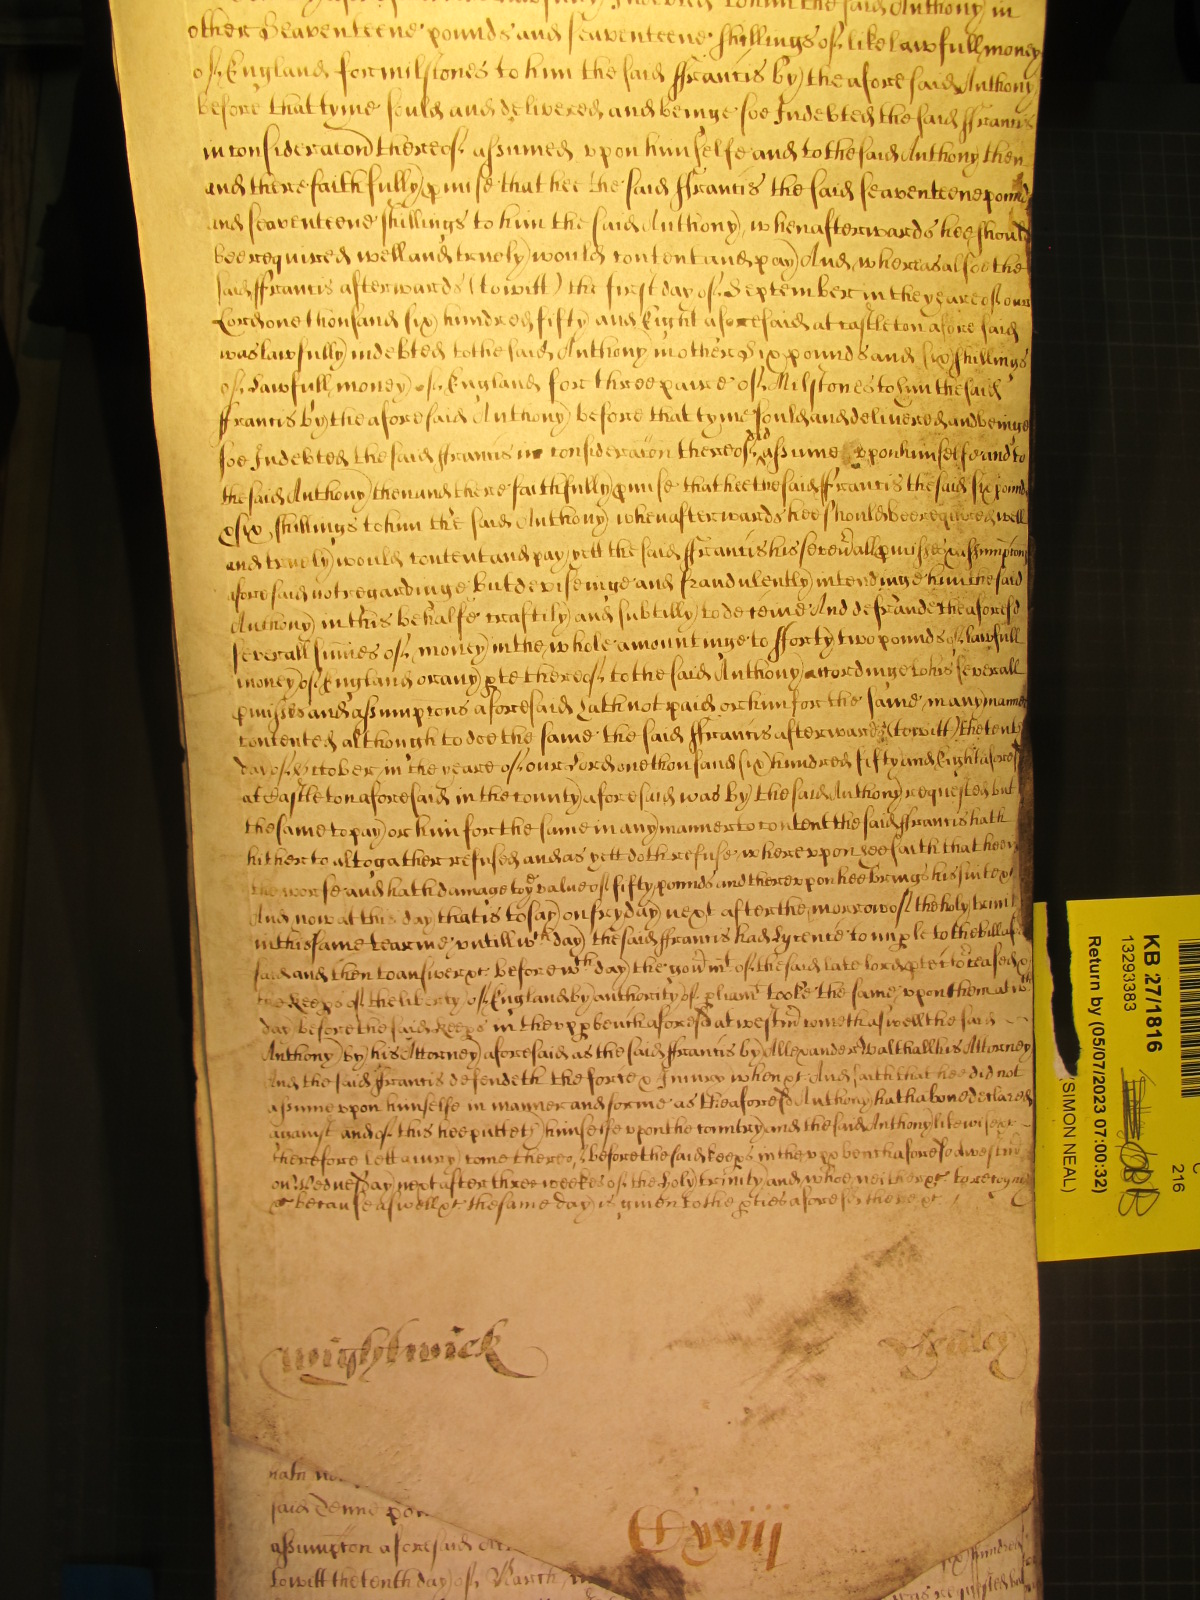 Indebted to him the said Anthony in
other Seaventeene pounds and seaventeene shillings of like lawfull money
of England for milstones to him the said ffrancis by the aforesaid Anthony
before that tyme sould and delivered and beinge soe Indebted the said ffrancis
in consideracon thereof assumed upon himselfe and to the said Anthony then
and there faithfully pmise that hee the said ffrancis the said seaventeene pounds
and seaventeene shillings to him the said Anthony when afterwards hee should
bee required well and truely would content and pay And whereas alsoe the
said ffrancis afterwards (to witt) the first day of September in the yeare of our
Lord one thousand six hundred fifty and Eight aforesaid at Castleton aforesaid
was lawfully indebted to the said Anthony in other Six pounds and six shillings
of Lawfull money of England for three paire of Milstones to him the said
ffrancis by the aforesaid Anthony before that tyme sould and delivered and beinge
soe Indebted the said ffrancis in consideracon thereof did assume upon himselfe and to
the said Anthony then and there faithfully pmise that hee the said ffrancis the said six pounds
& six shillings to him the said Anthony when afterwards hee should bee required well
and truely would content and pay yett the said ffrancis his severall pmisses & assumptons
aforesaid not regardinge but deviseinge and fraudulently intendinge him the said
Anthony in this behalfe craftily and subtilly to deceive And defraude the aforesd
severall sumes of money in the whole amountinge to fforty two pounds of lawfull
money of England or any pte thereof to the said Anthony accordinge to his severall
pmisses and assumptons aforesaid hath not paid or him for the same in any manner
contented although to doe the same the said ffrancis afterwards (to witt) the tenth
day of October in the yeare of our Lord one thousand six hundred fifty and Eight aforesd
at Castleton aforesaid in the county aforesaid was by the said Anthony requested but
the same to pay or him for the same in any manner to content the said ffrancis hath
hitherto altogather refused and as yett doth refuse whereupon hee saith that hee is
the worse and hath damage to ye value of fifty pounds and thereupon hee brings his suite &c
And now at this day that is to say on fryday next after the morrow of the holy trinit
in this same tearme untill wch day the said ffrancis had Lycence to imple to the bill afore
said and then to answer &c before wch day the of the said late lord ptector ceased &
the Keeps of the liberty of England by authority of pliamt tooke the same upon them at wch
day before the said Keeps in the upp bench aforesd at westm cometh aswell the said
Anthony by his Attorney aforesaid as the said ffrancis by Allexander Walthall his Attorney
And the said ffrancis defendeth the force & Iniury when &c And saith that hee did not
assume upon himselfe in manner and forme as the aforesd Anthony hath above declared
against and of this hee putteth himselfe upon the country and the said Anthony likewise &c
therefore lett a iury come thereof before the said Keeps in the upp bench aforesd at westm
on Wednesday next after three weekes of the holy trinity and whoe neither &c to recognize
&c because aswell &c the same day is given to the pties aforesd there &c
Wightwick
said Denne
assumpton aforesaid
to witt the tenth day of March
was requested but
KB 27/1816
13293383
Return by (05/07/2023 07:00:32)
(SIMON NEAL)
216